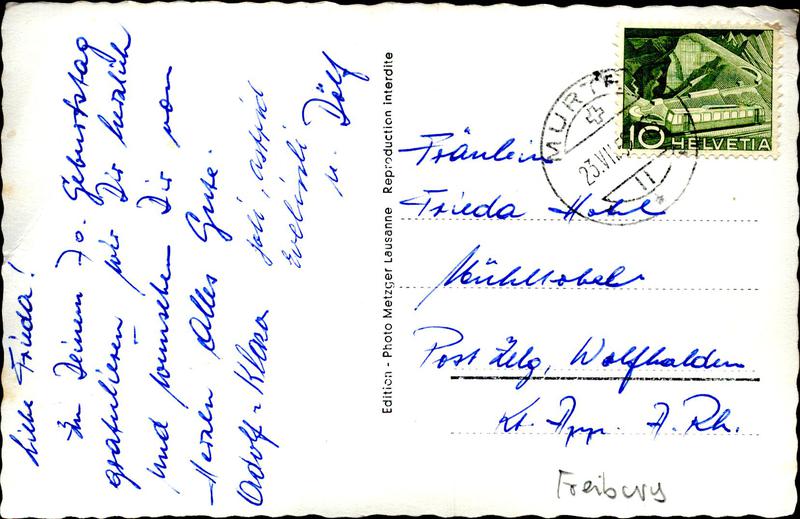 Liebe Frieda!
Zu Deinem 70. Geburtstag
gratulieren wir Dir herzlich
und wünschen Dir von
Herzen Alles Gute.
Adolf - Klara
u. Dölf
Edition - Photo Metzger Lausanne Reproduction interdite
10 HELVETIA
MURTEN
23.VII
Fräulein
Frieda Hohl
Mühltobel
Post Zelg, Wolfhalden
Kt. App. A. Rh.
Freiburg